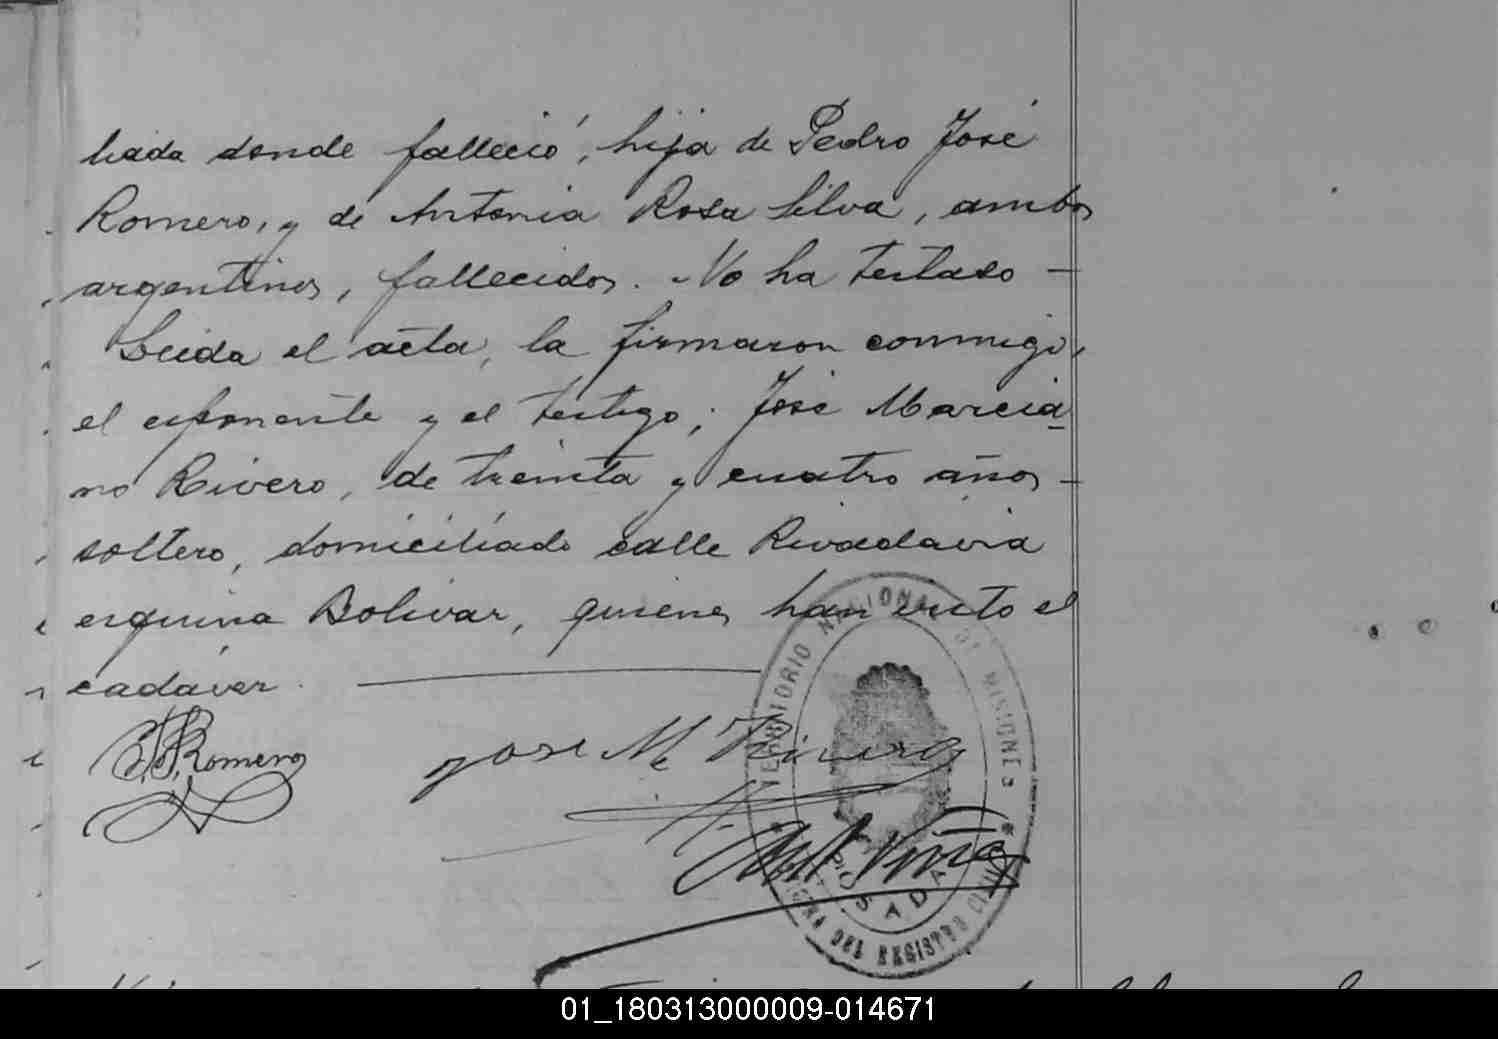 liada donde falleció, hija de Pedro José
Romero, y de Antonia Rosa Silva, ambos
argentinos, fallecidos. No ha testado —
Leida el acta, la firmaron conmigo,
el exponente y el testigo, José Marcia
no Rivero, de treinta y cuatro años —
soltero, domiciliado calle Rivadavia
esquina Bolivar, quienes han visto el
cadáver.
Romero
Jose M. Rivero
TERRITORIO NACIONAL DE MISIONES
POSADAS
OFICINA DEL REGISTRO CIVIL
01_180313000009-014671